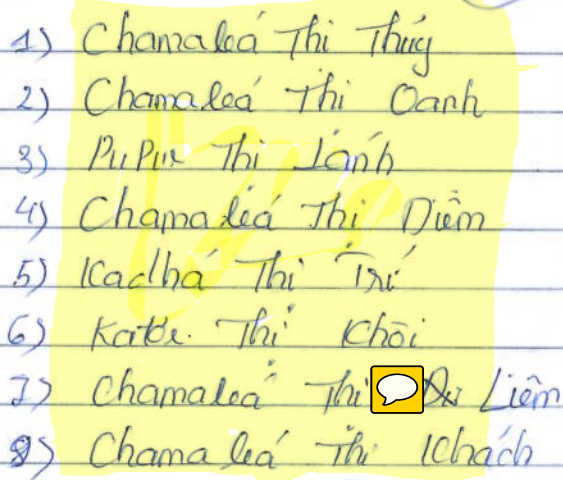 1) Chamaleá Thi Thúy
2) Chamaleá Thi Oanh
3) PuPur Thi Lánh
4) Chamaleá Thị Diễm
5) Kadhá Thi Trí
6) Katơr. Thị Khôi
7) Chamaleá Thi Liêm
8) Chamaleá Thi Khách